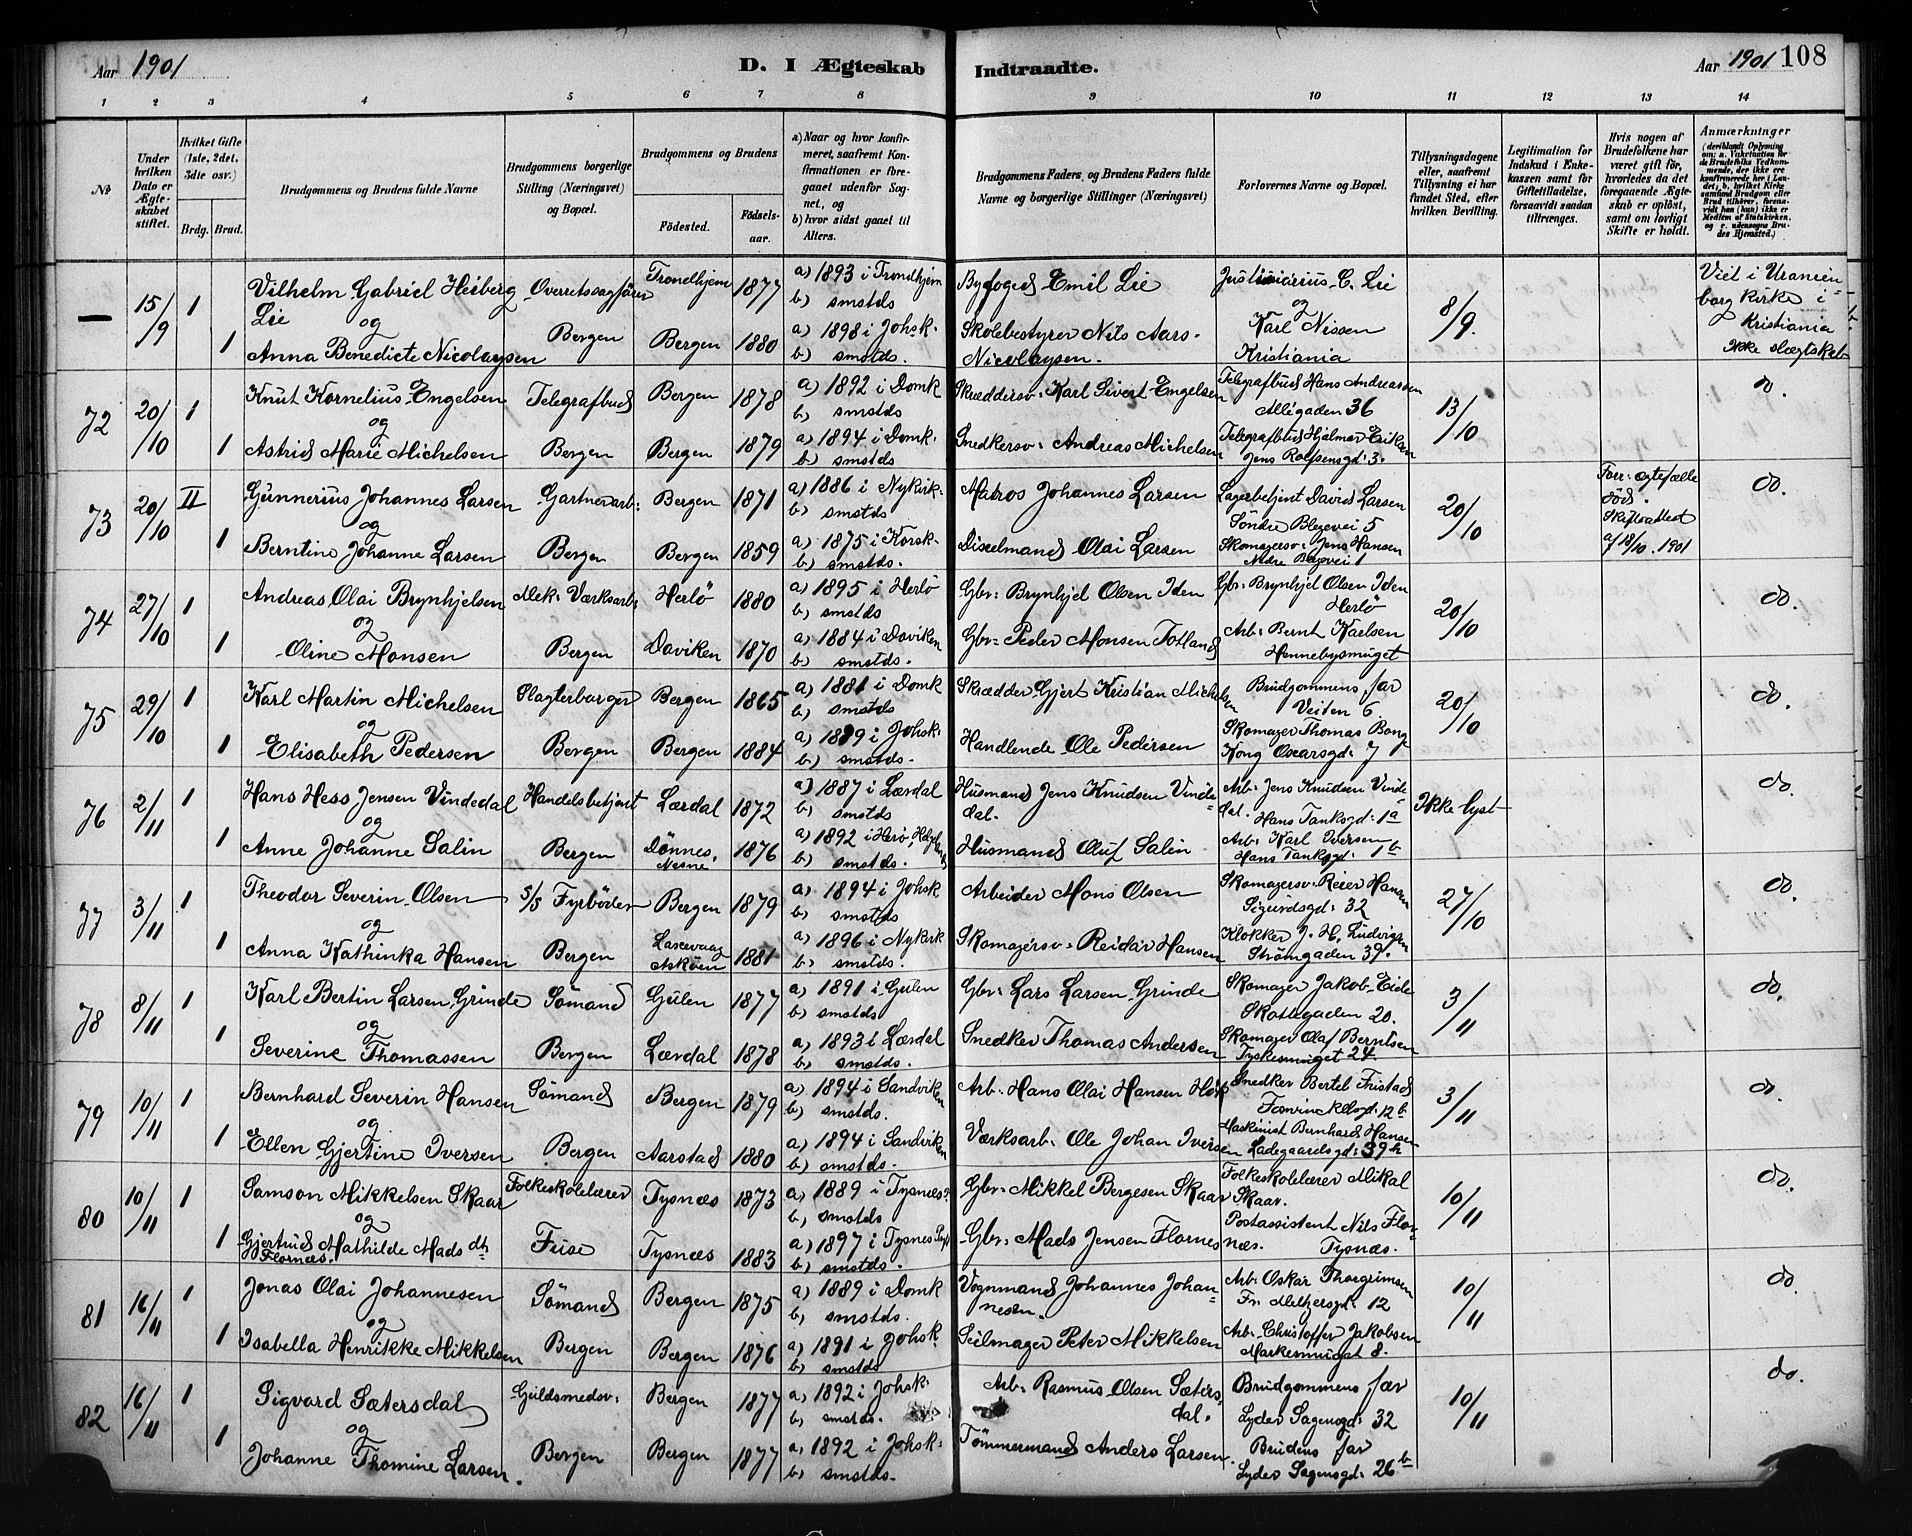 Aar 1901 D. I Ægteskab Indtraadte. Aar 1901 108
1 2 3 4 5 6 7 8 9 10 11 12 13 14
№
Under hvilken Dato er Ægteskabet stiftet.
Hvilket Gifte (1ste, 2det, 3die osv.)
Brdg. Brud.
Brudgommens og Brudens fulde Navne
Brudgommens borgerlige Stilling (Næringsvei) og Bopæl.
Brudgommens og Brudens
Fødested. Fødselsaar.
a) Naar og hvor konfirmeret, saafremt Konfirmationen er foregaaet udenfor Sognet, og
b) hvor sidst gaaet til Alters.
Brudgommens Faders, og Brudens Faders fulde Navne og borgerlige Stillinger (Næringsvei)
Forlovernes Navne og Bopæl.
Tillysningsdagene eller, saafremt Tillysning ei har fundet Sted, efter hvilken Bevilling.
Legitimation for Indskud i Enkekassen samt for Giftetilladelse, forsaavidt saadan tiltrænges.
Hvis nogen af Brudefolkene har været gift før, hvorledes da det foregaaende Ægteskab er opløst, samt om lovligt Skifte er holdt.
Anmærkninger (deriblandt Oplysning om: a. Vakcination for de Brudefolks Vedkommende, der ikke ere konfirmerede her i Landet; b. hvilket Kirkesamfund Brudgom eller Brud tilhører, forsaavidt han (hun) ikke er Medlem af Statskirken, og c. udensogns Brudes Hjemsted.)
— 15/9 1 Vilhelm Gabriel Heiberg Lie Overretssagfører Trondhjem 1877 a) 1893 i Trondhjem b) smstds Byfoged Emil Lie Justitiarius C. Lie 8/9 Viet i Uranienborg Kirke i Kristiania
og
1 Anna Benedicte Nicolaysen Bergen Bergen 1880 a) 1898 i Johsk. b) smstds. Skolebestyrer Nils Aars Nicolaysen. og Karl Nissen Kristiania Ikke slægtskab
72 20/10 1 Knut Kornelius Engelsen Telegrafbud Bergen 1878 a) 1892 i Domk b) smstds Skræddersv: Karl Sivert Engelsen Telegrafbud Hans Andreassen Allégaden 36 13/10 do.
og
1 Astrid Marie Michelsen Bergen Bergen 1879 a) 1894 i Domk. b) smstds Snedkersv: Andreas Michelsen Telegrafbud Hjalmar Eriksen Jens Rolfsensgd: 3.
73 20/10 II Gunnerius Johannes Larsen Gartnerarb: Bergen 1871 a) 1886 i Nykirk. b) smstds Matros Johannes Larsen Lagerbetjent David Larsen Søndre Blegevei 5 20/10 Forr: ægtefælle død. Skifteattest af 18/10. 1901 do.
og
1 Berntine Johanne Larsen Bergen Bergen 1859 a) 1875 i Korsk. b) smstds. Diselmand Olai Larsen Skomagersv: Jens Hansen Nedre Blegevei 1
74 27/10 1 Andreas Olai Brynhjelsen Mek: Værksarb: Herlö 1880 a) 1895 i Herlö b) smstds Gbr: Brynhjel Olsen Iden Gbr: Brynhjel Olsen Iden Herlö 20/10 do.
og
1 Oline Monsen Bergen Daviken 1870 a) 1884 i Daviken b) smstds. Gbr: Peder Monsen Totland Arb: Bernt Karlsen Hennebysmuget
75 29/10 1 Karl Martin Michelsen Slagterborger Bergen 1865 a) 1881 i Domk b) smstds Skrædder Gjert Kristian Michelsen Brudgommens far Veiten 6 20/10 do.
og
1 Elisabeth Pedersen Bergen Bergen 1884 a) 1899 i Johsk. b) smstds. Handlende Ole Pedersen Skomager Thomas Bong Kong Oscarsgd: 7
76 2/11 1 Hans Hess Jensen Vindedal Handelsbetjent Lærdal 1872 a) 1887 i Lærdal b) smstds Husmand Jens Knudsen Vindedal. Arb: Jens Knudsen Vindedal. Hans Tanksgd: 1a Ikke lyst do.
og
1 Anne Johanne Salin Bergen Dönnes, Nesne 1876 a) 1892 i Herö, b) smstds. Husmand Oluf Salin Arb: Karl Iversen Hans Tanksgd: 1b
77 3/11 1 Theodor Severin Olsen S/S Fyrböder Bergen 1879 a) 1894 i Johsk b) smstds Arbeider Mons Olsen Skomagersv: Reier Hansen Sigurdsgd: 32 27/10 do.
og
1 Anna Kathinka Hansen Bergen Laxevaag Asköen 1881 a) 1896 i Nykirk b) smstds. Skomagersv: Reidar Hansen Klokker J. H. Ludvigsen Strömgaden 39.
78 8/11 1 Karl Bertin Larsen Grinde Sömand Gulen 1877 a) 1891 i Gulen b) smstds Gbr: Lars Larsen Grinde Skomager Jakob Eide Skottegaden 20. 3/11 do.
og
1 Severine Thomassen Bergen Lærdal 1878 a) 1893 i Lærdal b) smstds. Snedker Thomas Andersen Skomager Olaf Berntsen Tyskesmuget 24
79 10/11 1 Bernhard Severin Hansen Sömand Bergen 1879 a) 1894 i Sandviken b) smstds. Arb: Hans Olai Hansen Snedker Bertel Fristad Fosvinckelsgd: 12b 3/11 do.
og
1 Ellen Gjertine Iversen Bergen Aarstad 1880 a) 1894 i Sandviken b) smstds. Værksarb: Ole Johan Iversen Maskinist Bernhard Hansen Ladegaardsgd: 39
80 10/11 1 Samson Mikkelsen Skaar Folkeskolelærer Tysnæs 1873 a) 1889 i Tysnæs b) smstds Gbr: Mikkel Bergesen Skaar Folkeskolelærer Mikal Skaar. 10/11 do.
og
1 Gjertrud Mathilde Mads dtr Flornæs. Fuse Tysnæs 1883 a) 1897 i Tysnes b) smstds. Gbr: Mads Jensen Flornes Postassistent Nils Flornæs. Tysnæs.
81 16/11 1 Jonas Olai Johannesen Sömand Bergen 1875 a) 1889 i Domk b) smstds. Vognmand Johannes Johannesen. Arb: Oskar Thorgrimsen Fr. Meltzersgd: 12 10/11 do.
og
1 Isabella Henrikke Mikkelsen Bergen Bergen 1876 a) 1891 i Johsk. b) smstds Seilmager Peter Mikkelsen Arb: Christoffer Jakobsen Markesmuget 8.
82 16/11 1 Sigvard Sætersdal Guldsmedsv: Bergen 1877 a) 1892 i Johsk. b) smstds. Arb: Rasmus Olsen Sætersdal. Brudgommens far Lyder Sagensgd: 32 10/11 do.
og
1 Johanne Thomine Larsen. Bergen Bergen 1877 a) 1892 i Johsk. b) smstds. Tömmermand Anders Larsen. Brudens far Lyder Sagensgd: 26b